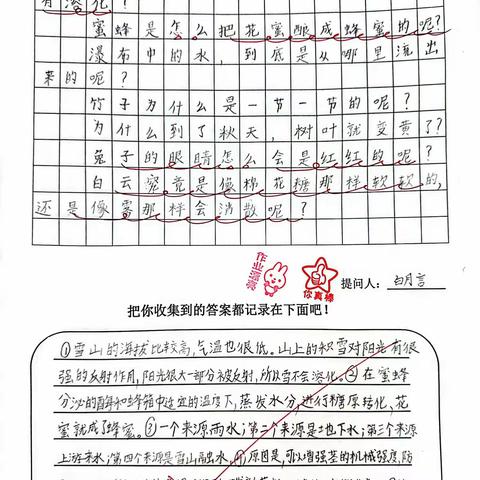 有溶化?
蜜蜂是怎么把花蜜酿成蜂蜜的呢?
瀑布中的水,到底是从哪里流出
来的呢?
竹子为什么是一节一节的呢?
为什么到了秋天,树叶就变黄了?
兔子的眼睛怎么会是红红的呢?
白云究竟是像棉花糖那样软软的,
还是像雾那样会消散呢?
作业漂亮
你真棒
提问人:
把你收集到的答案都记录在下面吧!
①雪山的海拔比较高,气温也很低。山上的积雪对阳光有很
强的反射作用,阳光很大一部分被反射,所以雪不会溶化。②在蜜蜂
分泌的酶和蜂箱中适宜的温度下,蒸发水分,进行糖原转化,花
蜜就成了蜂蜜。③一个来源雨水;第二个来源是地下水;第三个来源
上游来水;第四个来源是雪山融水。④原因是,可以增强茎的机械强度,防